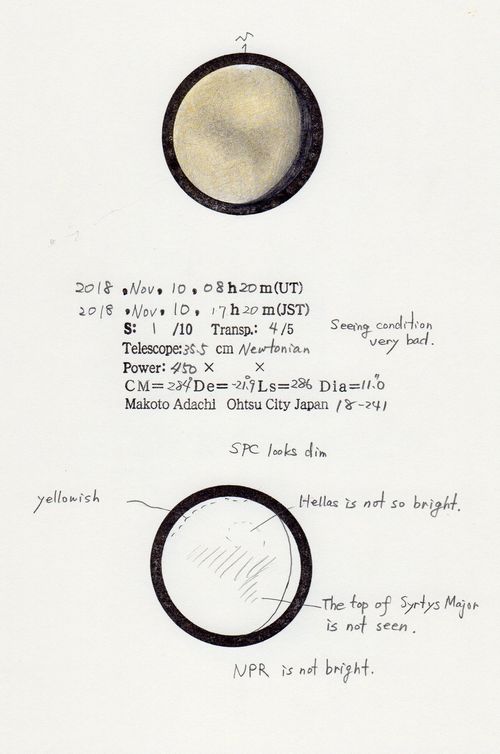 S
2018 , Nov, 10, 08 h 20 m (UT)
2018 , Nov, 10, 17 h 20 m (JST)
S: 1 /10 Transp.: 4 /5
Seeing condition
very bad.
Telescope: 35.5 cm Newtonian
Power: 450 × ×
CM= 284° De= -21.9 Ls= 286 Dia= 11.″0
Makoto Adachi Ohtsu City Japan 18-241
SPC looks dim
yellowish
Hellas is not so bright.
The top of Syrtys Major
is not seen.
NPR is not bright.